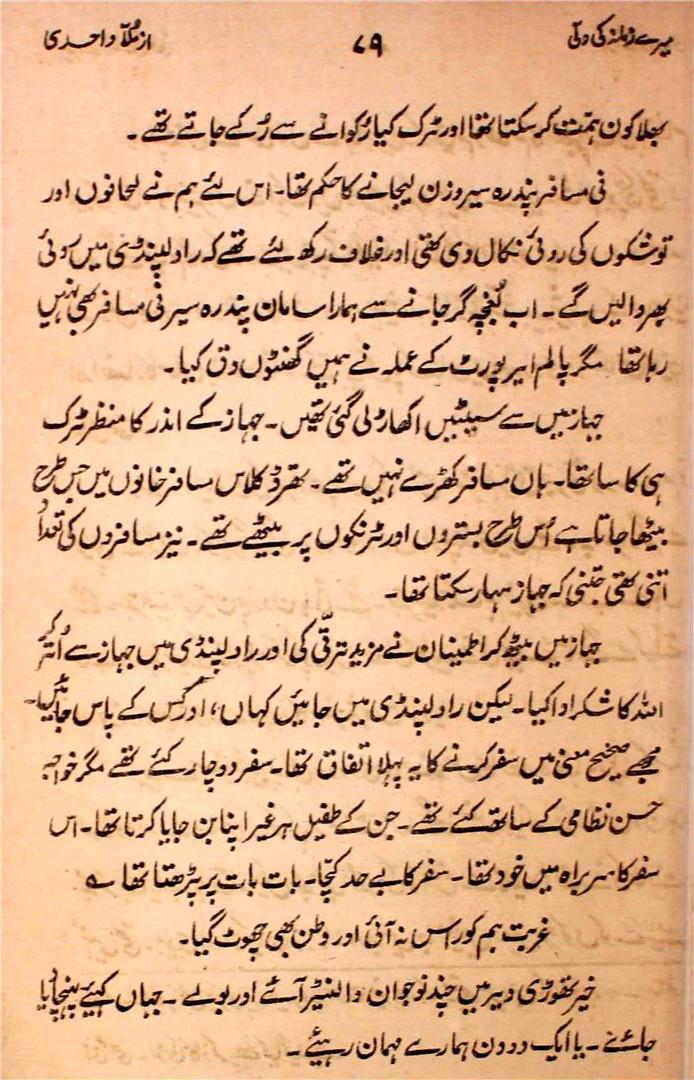 میرے زمانہ کی دلّی ۷۹ از مُلّا واحدی
بھلا کون ہمّت کر سکتا تھا اور ٹرک کیا رُکوانے سے رُکے جاتے تھے۔
فی مسافر پندرہ سیر وزن لیجانے کا حکم تھا۔ اس لئے ہم نے لحافوں اور
توشکوں کی روئی نکال دی تھی اور غلاف رکھ لئے تھے کہ راولپنڈی میں روئی
بھروالیں گے۔ اب بُغچہ گر جانے سے ہمارا سامان پندرہ سیر فی مسافر بھی نہیں
رہا تھا مگر پالم ایرپورٹ کے عملہ نے ہمیں گھنٹوں دق کیا۔
جہاز میں سے سیٹیں اکھاڑ لی گئی تھیں۔ جہاز کے اندر کا منظر ٹرک
ہی کا سا تھا۔ ہاں مسافر کھڑے نہیں تھے۔ تھرڈ کلاس مسافر خانوں میں جس طرح
بیٹھا جاتا ہے اُس طرح بستروں اور ٹرنکوں پر بیٹھے تھے۔ نیز مسافروں کی تعداد
اتنی تھی جتنی کہ جہاز سہار سکتا تھا۔
جہاز میں بیٹھ کر اطمینان نے مزید ترقّی کی اور راولپنڈی میں جہاز سے اُتر کر
اللہ کا شکر ادا کیا۔ لیکن راولپنڈی میں جائیں کہاں، اور کس کے پاس جائیں۔
مجھے صحیح معنی میں سفر کرنے کا یہ پہلا اتفاق تھا۔ سفر دو چار کئے تھے مگر خواجہ
حسن نظامی کے ساتھ کئے تھے۔ جن کے طفیل ہر غیر اپنا بن جایا کرتا تھا۔ اس
سفر کا سربراہ میں خود تھا۔ سفر کا بے حد کچّا۔ بات بات پر پڑھتا تھا ؎
غربت ہم کو راس نہ آئی اور وطن بھی چھوٹ گیا۔
خیر تھوڑی دیر میں چند نوجوان والنٹیر آئے اور بولے۔ جہاں کہیئے پہنچا دیا
جائے۔ یا ایک دو دن ہمارے مہمان رہیئے۔